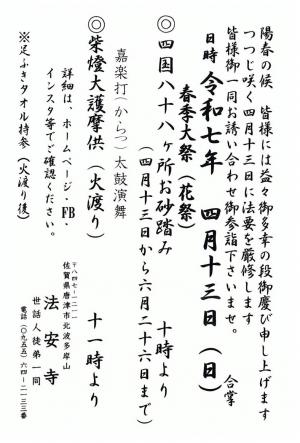 陽春の候　皆様には益々御多幸の段御慶び申し上げます
つつじ咲く四月十三日に法要を厳修します
皆様御一同お誘い合わせ御参詣下さいませ。　合掌
日時　令和七年　四月十三日（日）
春季大祭（花祭）
◎四国八十八ヶ所お砂踏み　十時より
（四月十三日から六月二十六日まで）
嘉楽打（からつ）太鼓演舞
◎柴燈大護摩供（火渡り）　十一時より
詳細は、ホームページ・FB・
インスタ等でご確認ください。
※足ふきタオル持参（火渡り後）
〒八四七-一二一一
佐賀県唐津市北波多岸山
法安寺
世話人徒弟一同
電話（〇九五五）六四-二一三三番